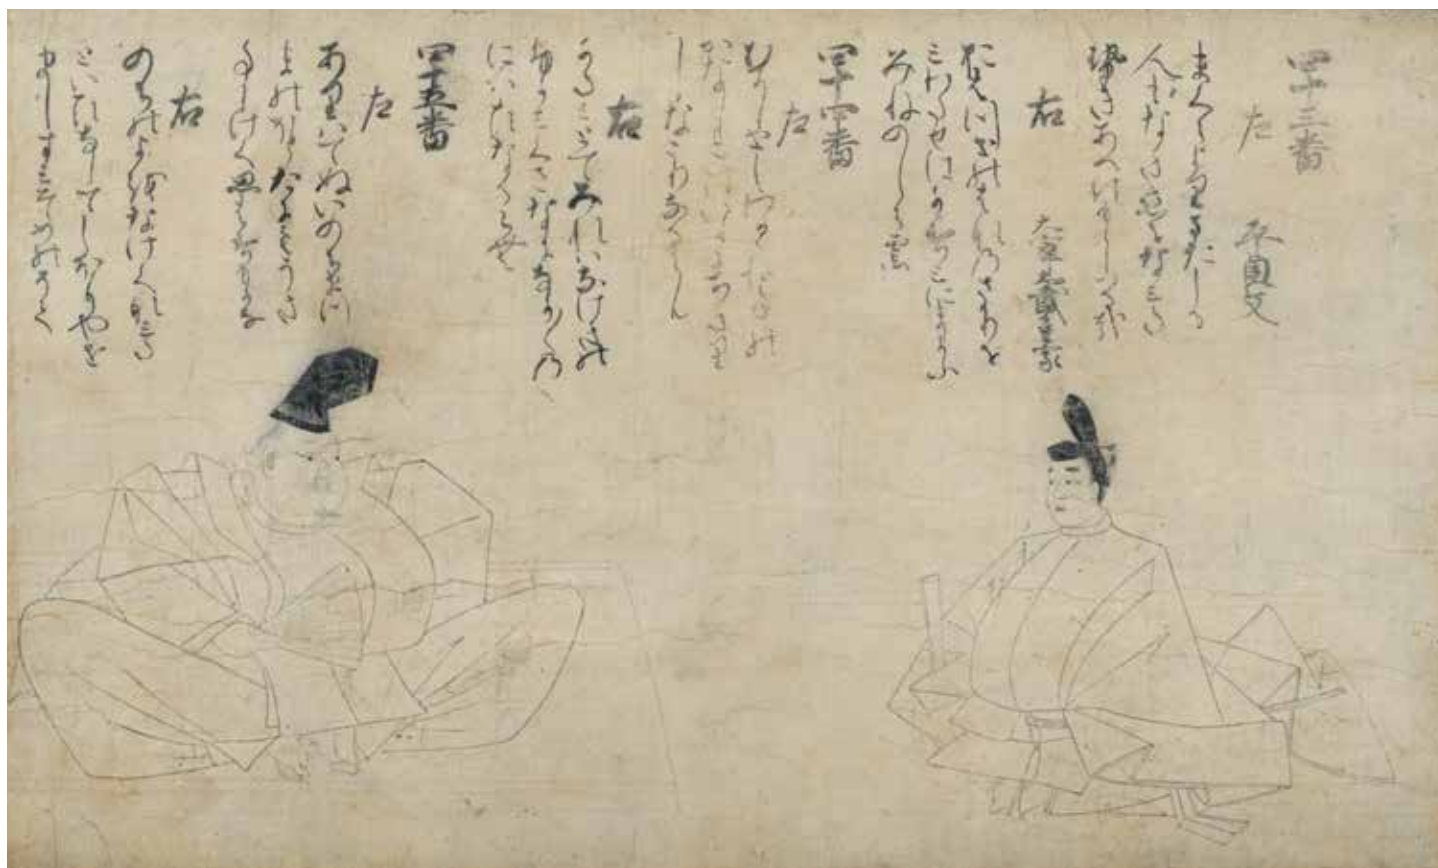 四十三番
左 平貞文
まくらよりまたしる
人もなき恋をなみた
せきあへすもらしつる哉
右 大宰大弐重家
みわたせはかすみにまかふ
みねのしら雲
四十四番
左
むかしせしわかかねことの
かなしきはいかにちきり
しなこりなるらん
右
かたみとてみれはなけきの
ふかみくさなになかなかの
にほひなるらむ
四十五番
左
ありはてぬいのちまつ
まのほとはかりうきこ
としけく思はすもかな
右
のちのよをなけくなみた
といひなしてしほりやせ
ましすみそめのそて